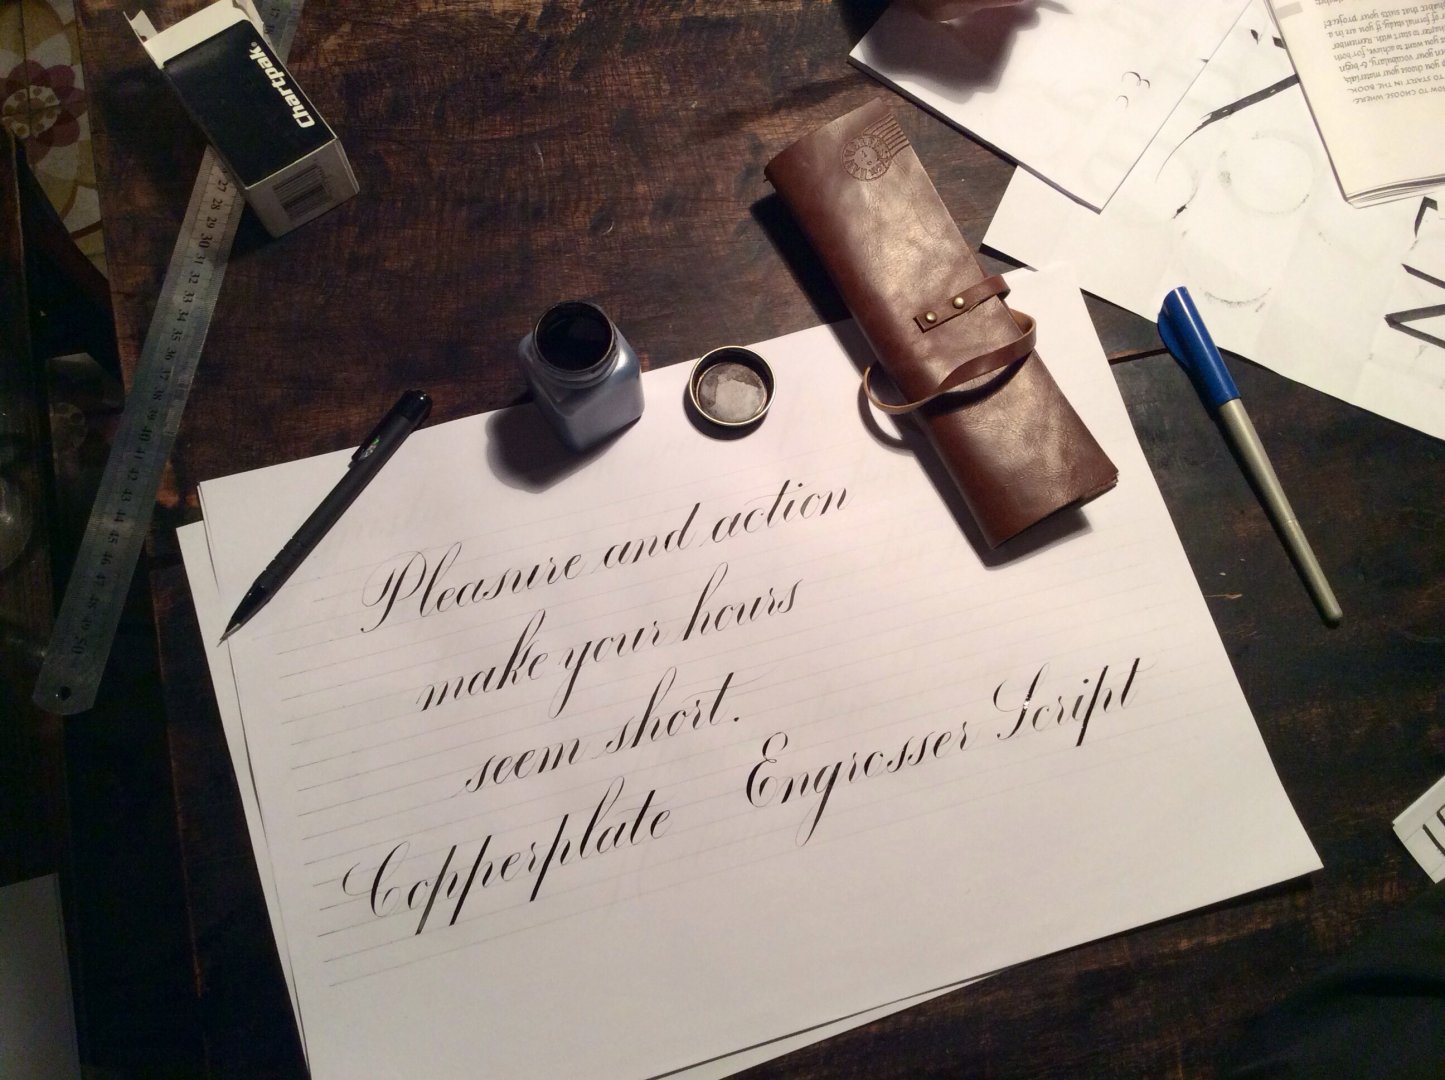 Chartpak.
27 28 29 30 31 32 33 34 35 36 37 38 39 40 41 42 43 44 45 46 47 48 49 50
HOW TO CHOOSE WHERE
TO START IN THE BOOK.
you choose your materials,
vocabulary, & begin
you want to achieve, for both
to start with. Remember
of formal study if you are in a
habit that suits your project!
Pleasure and action
make your hours
seem short.
Copperplate Engrosser Script